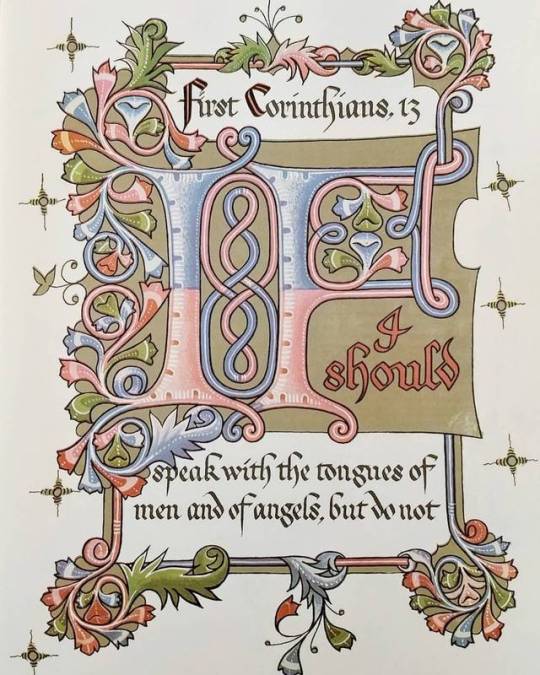 First Corinthians, 13
IF
I
should
speak with the tongues of
men and of angels, but do not